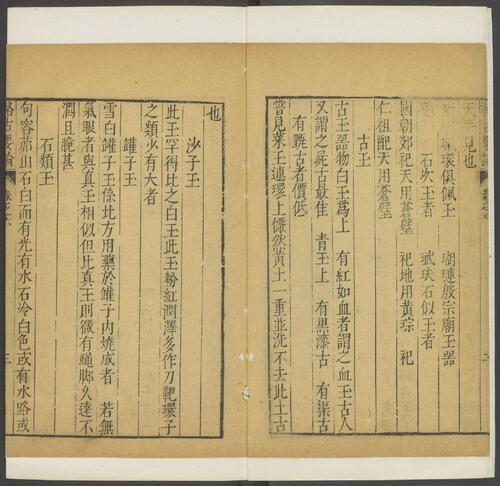 天 見也
環俱佩玉 瑚璉殷宗廟玉器
石次玉者 珷玞石似玉者
國朝郊祀天用蒼璧 祀地用黃琮 祀
仁祖配天用蒼璧
古玉
古玉器物白玉爲上 有紅如血者謂之血玉古人
又謂之屍古最佳 青玉上 有黑漆古 有渠古
有甄古者價低
嘗見菜玉連環上儼然黃土一重並洗不去此土古
也
沙子玉
此玉罕得比之白玉此玉粉紅潤澤多作刀靶環子
之類少有大者
罐子玉
雪白罐子玉係北方用藥於罐子內燒成者 若無
氣眼者與真玉相似但比真玉則微有蠅脚久遠不
潤且脆甚
石類玉
句容茆山石白而有光有水石冷白色或有水路或
格古要論 卷之六 三